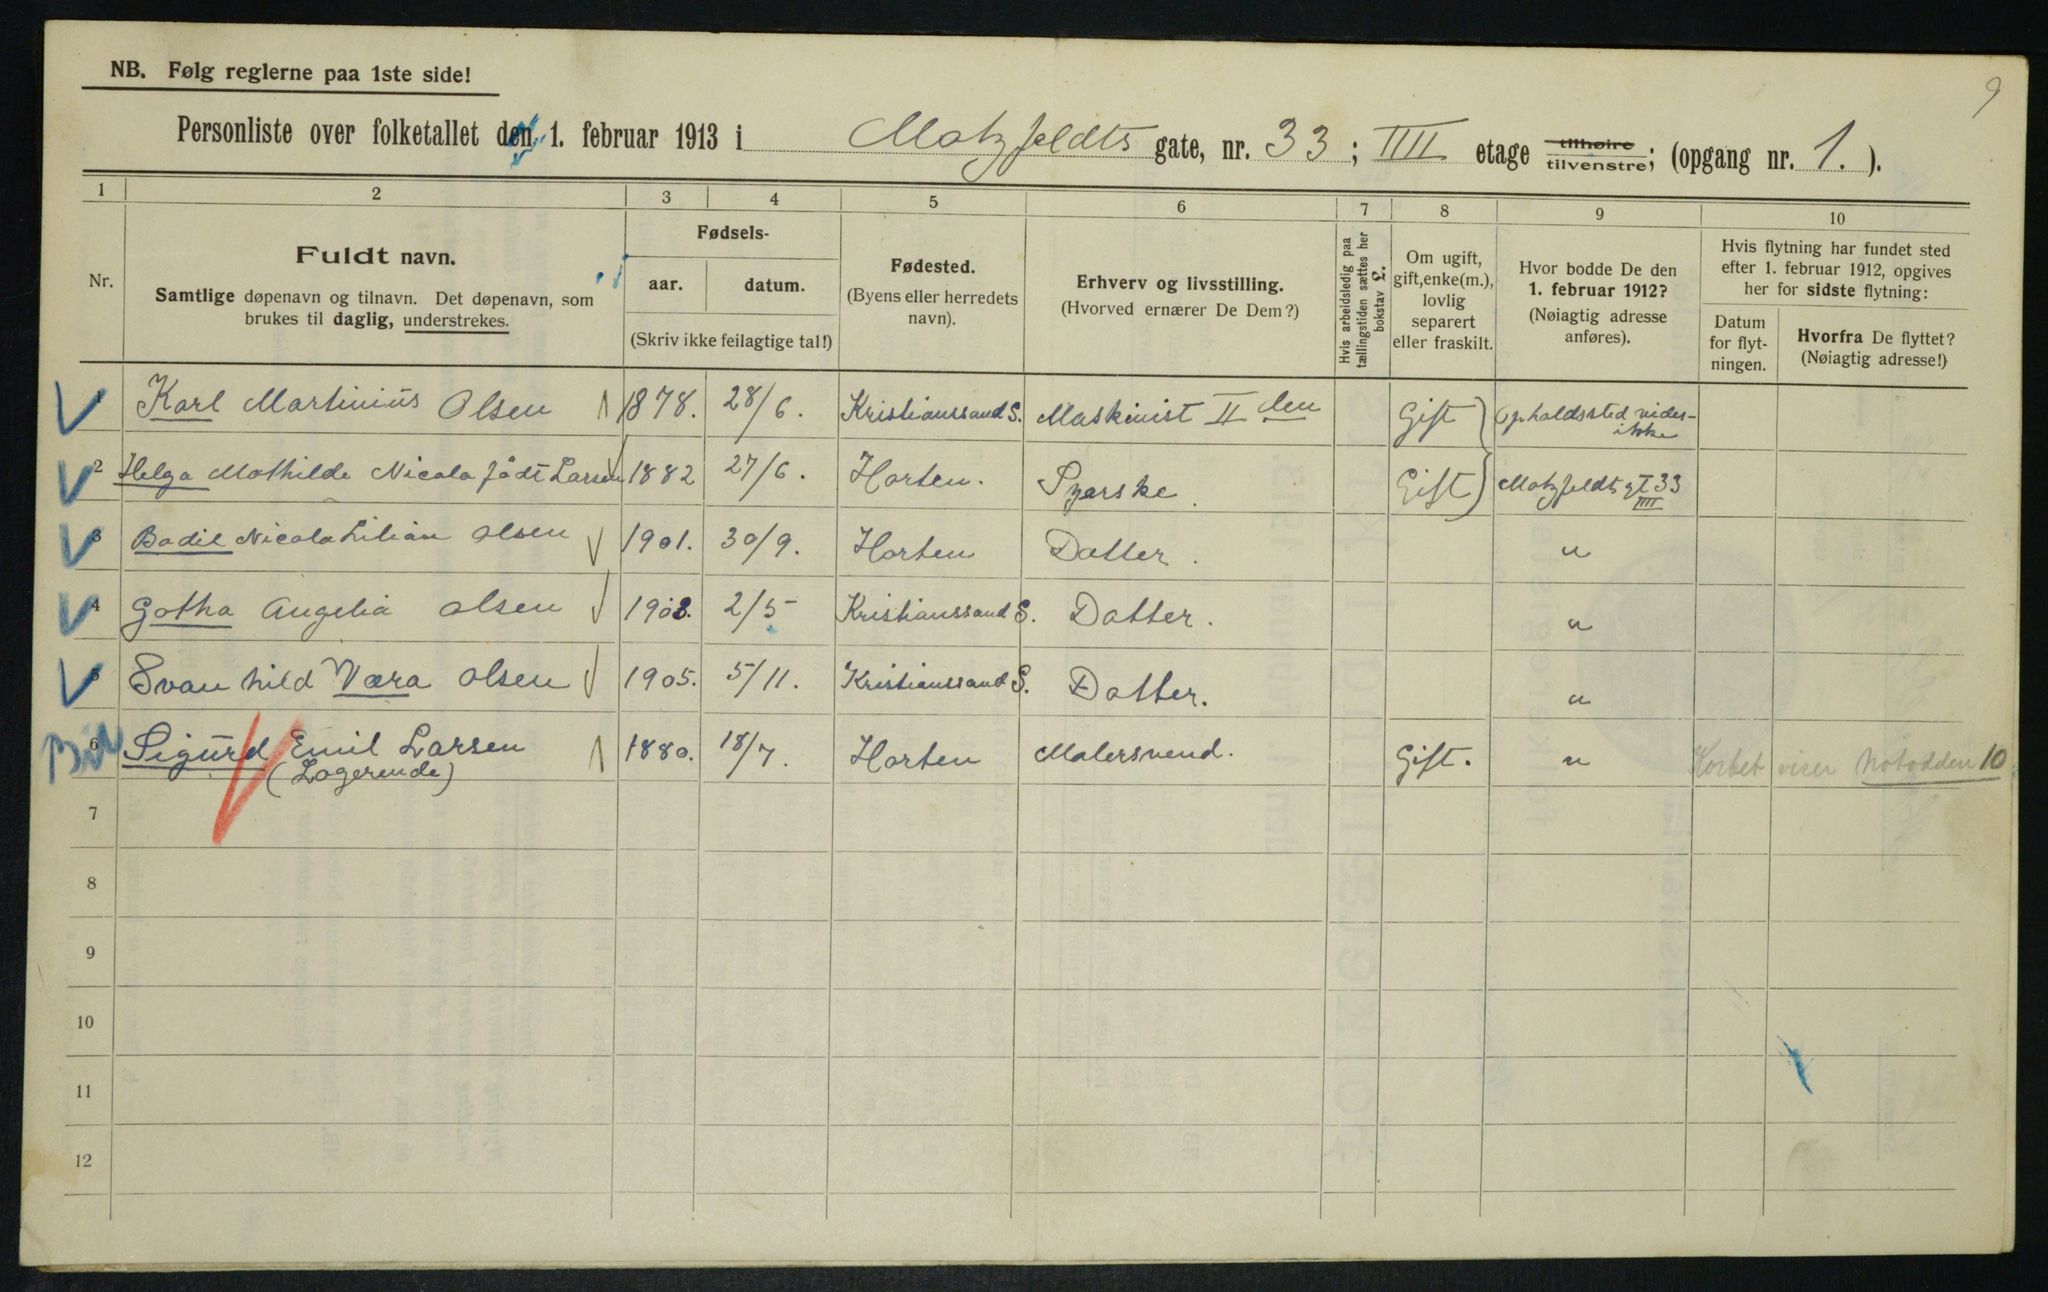 9
NB. Følg reglerne paa 1ste side!
Personliste over folketallet den 1. februar 1913 i Motzfeldts gate, nr. 33; IIII etage tilhøire tilvenstre; (opgang nr. 1.).
1 2 3 4 5 6 7 8 9 10
Nr.
Fuldt navn.
Samtlige døpenavn og tilnavn. Det døpenavn, som
brukes til daglig, understrekes.
Fødsels-
aar. datum.
(Skriv ikke feilagtige tal!)
Fødested.
(Byens eller herredets
navn).
Erhverv og livsstilling.
(Hvorved ernærer De Dem?)
Hvis arbeidsledig paa
tællingstiden sættes her
bokstav £.
Om ugift,
gift, enke(m.),
lovlig
separert
eller fraskilt.
Hvor bodde De den
1. februar 1912?
(Nøiagtig adresse
anføres).
Hvis flytning har fundet sted
efter 1. februar 1912, opgives
her for sidste flytning:
Datum
for flyt-
ningen.
Hvorfra De flyttet?
(Nøiagtig adresse!)
1 Karl Martinius Olsen 1878. 28/6. Kristianssand S. Maskinist II den Gift Opholdssted vides-
ikke
2 Helga Mathilde Nicola født Larsen 1882 27/6. Horten. Syerske. Gift Motzfeldts gt 33
IIII
3 Bodil Nicola Lilian Olsen 1901. 30/9. Horten Datter. "
4 Gotha Angelia Olsen 1903. 2/5 Kristianssand S. Datter. "
5 Svanhild Væra Olsen 1905. 5/11. Kristianssand S. Datter. "
6 Sigurd Emil Larsen 1880. 18/7. Horten Malersvend. Gift. " Kortet viser Notodden 10
(Logerende)
7
8
9
10
11
12